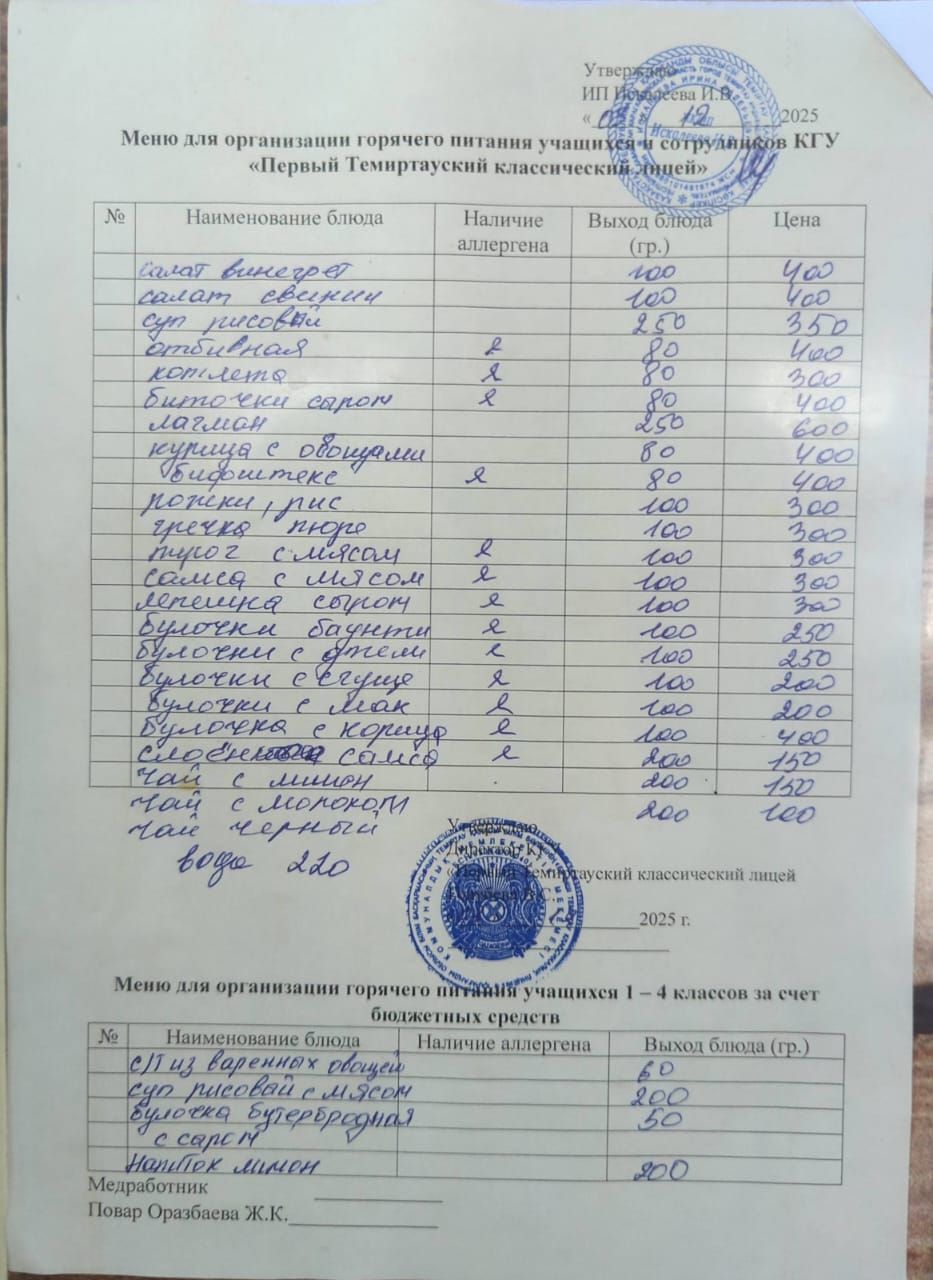 Утверждаю
ИП Искалеева И.В.
« 05 » 12 2025
Меню для организации горячего питания учащихся и сотрудников КГУ
«Первый Темиртауский классический лицей»
№ Наименование блюда Наличие аллергена Выход блюда (гр.) Цена
салат винегрет 100 400
салат свекии 100 400
суп рисовый 250 350
отбивная я 80 400
котлета я 80 300
биточки сыром я 80 400
лагман 250 600
курица с овощами 80 400
бифштекс я 80 400
рожки, рис 100 300
гречка пюре 100 300
пирог с мясом я 100 300
самса с мясом я 100 300
лепешка сыром я 100 300
булочки баунти я 100 250
булочки с джем я 100 250
булочки с сгуще я 100 200
булочки с мак я 100 200
булочка с корицо я 100 400
слоен самса я 200 150
чай с лимон 200 150
чай с молоком 200 100
чай черный
вода 220
Утверждаю
Директор КГУ
«Первый Темиртауский классический лицей
2025 г.
Меню для организации горячего питания учащихся 1 – 4 классов за счет
бюджетных средств
№ Наименование блюда Наличие аллергена Выход блюда (гр.)
с/т из варенных овощей 60
суп рисовый с мясом 200
булочка бутербродная 50
с саром
Напиток лимон 200
Медработник
Повар Оразбаева Ж.К.